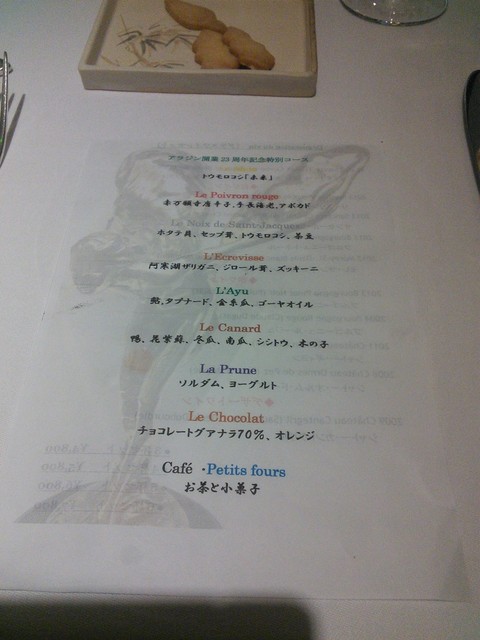 アラジン開業23周年記念特別コース
トウモロコシ「未来」
Le Poivron rouge
赤万願寺唐辛子、手長海老、アボカド
Le Noix de Saint-Jacques
ホタテ貝、セップ茸、トウモロコシ、茶豆
L'Ecrevisse
阿寒湖ザリガニ、ジロール茸、ズッキーニ
L'Ayu
鮎、タプナード、金糸瓜、ゴーヤオイル
Le Canard
鴨、冬瓜、南瓜、シシトウ、木の子
La Prune
ソルダム、ヨーグルト
Le Chocolat
チョコレートグアナラ70%、オレンジ
Café ・Petits fours
お茶と小菓子